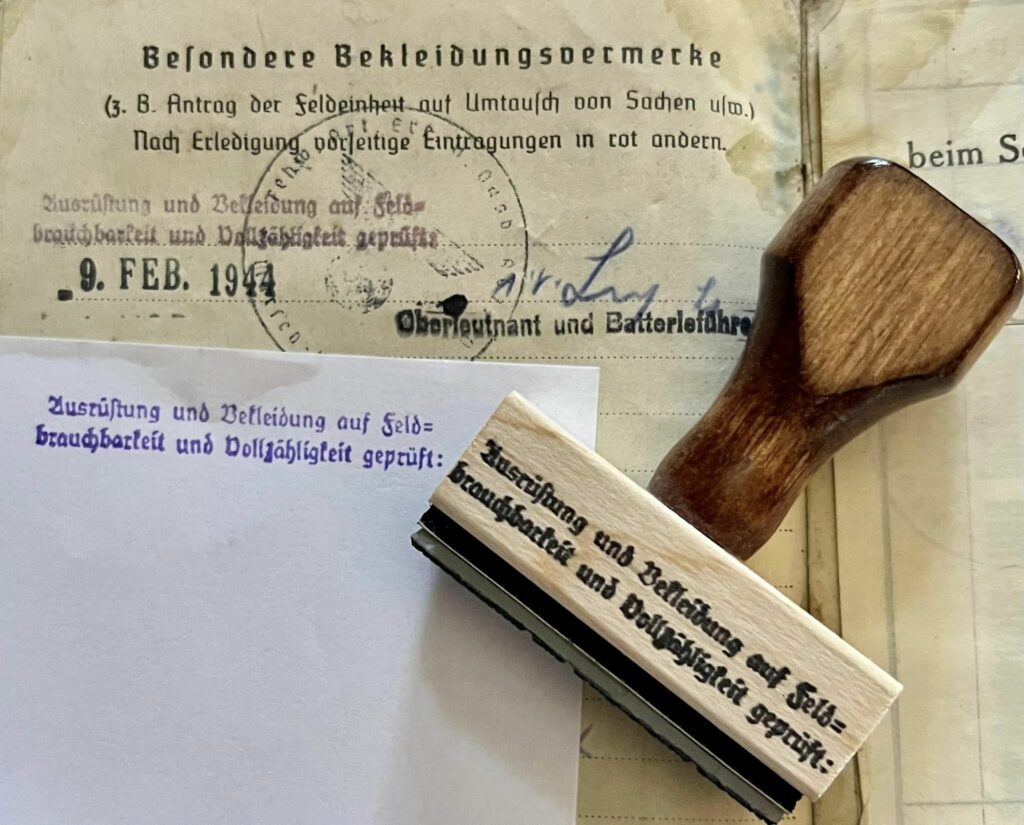 Besondere Bekleidungsvermerke
(z. B. Antrag der Feldeinheit auf Umtausch von Sachen usw.)
Nach Erledigung vorseitige Eintragungen in rot ändern.
beim
Ausrüstung und Bekleidung auf Feld=
brauchbarkeit und Vollzähligkeit geprüft:
9. FEB. 1944
Oberleutnant und Batterieführe
Ausrüstung und Bekleidung auf Feld=
brauchbarkeit und Vollzähligkeit geprüft:
Ausrüstung und Bekleidung auf Feld=
brauchbarkeit und Vollzähligkeit geprüft: